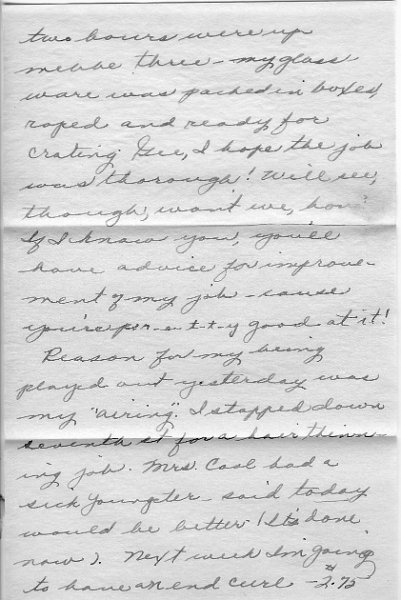 two hours were up
mebbe three - my glass
ware was packed in boxes,
roped and ready for
crating. Gee, I hope the job
was thorough! Will see,
though, won't we, hon?
If I know you, you'll
have advice for improve-
ment of my job - cause
you're p-r-e-t-t-y good at it!
Reason for my being
played out yesterday was
my "airing". I stopped down
seventh st for a hair thinn-
ing job. Mrs. Cool had a
sick youngster - said today
would be better. (It's done
now). Next week I'm going
to have an end curl - 2.75